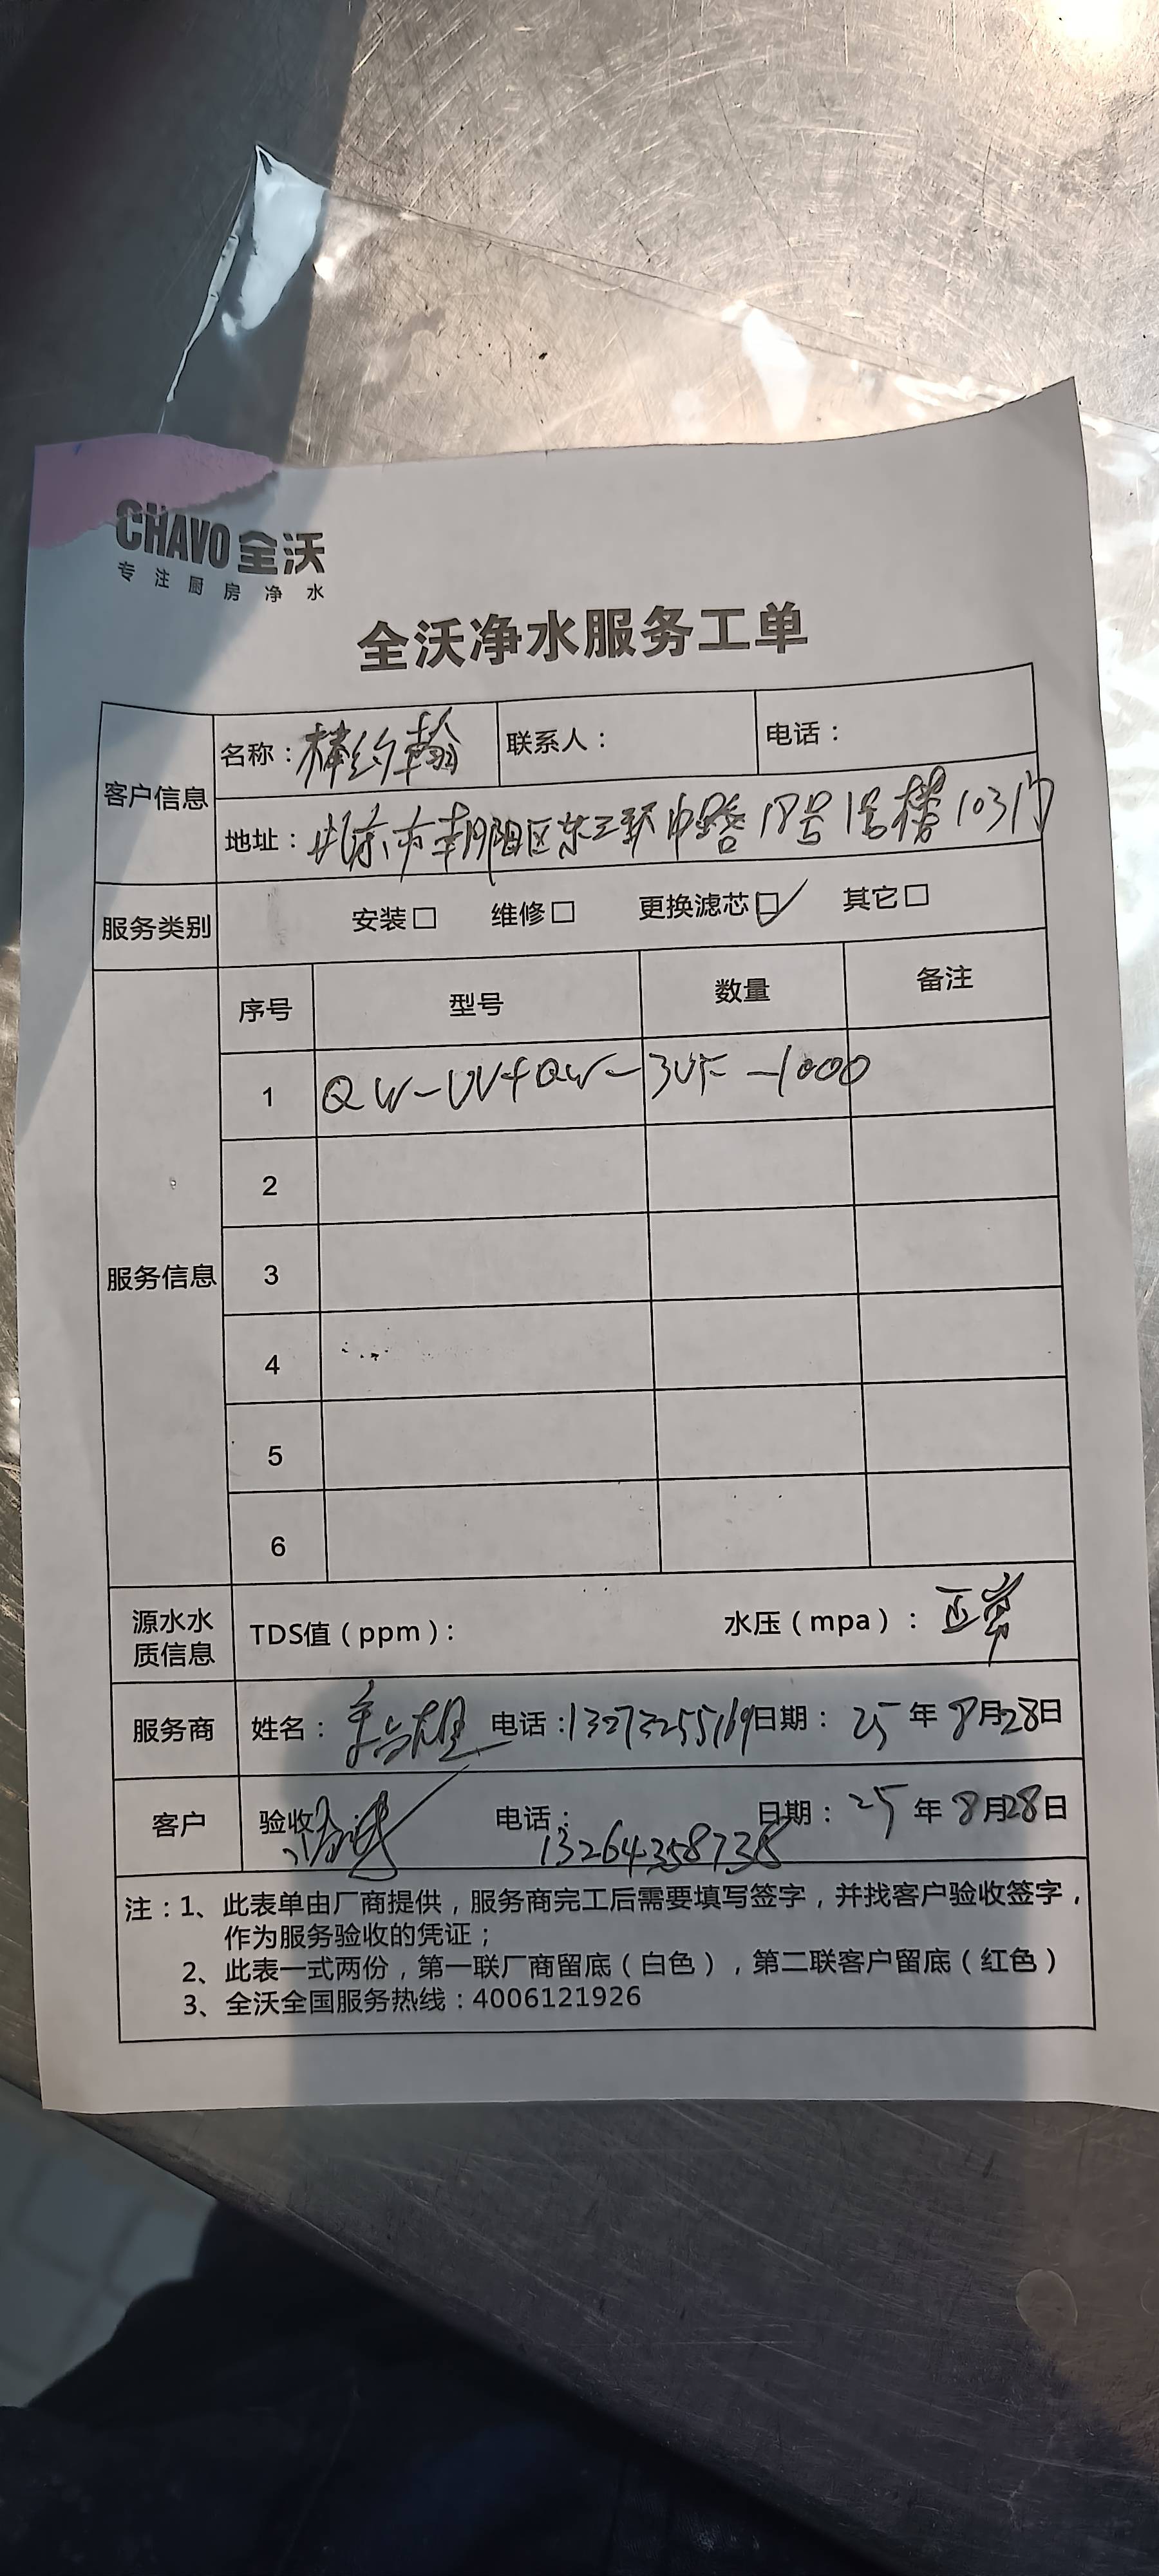 CHAVO 全沃
专注厨房净水
全沃净水服务工单
客户信息
名称：棒约翰 联系人： 电话：
地址：北京市朝阳区东三环中路18号1号楼103门
服务类别 安装□ 维修□ 更换滤芯☑ 其它□
服务信息
序号 型号 数量 备注
1 QW-UV+QW-3UF-1000
2
3
4
5
6
源水水质信息 TDS值（ppm）： 水压（mpa）：正常
服务商 姓名： 电话：13273255169 日期：25年8月28日
客户 验收 电话：13264358738 日期：25年8月28日
注：1、此表单由厂商提供，服务商完工后需要填写签字，并找客户验收签字，
作为服务验收的凭证；
2、此表一式两份，第一联厂商留底（白色），第二联客户留底（红色）
3、全沃全国服务热线：4006121926